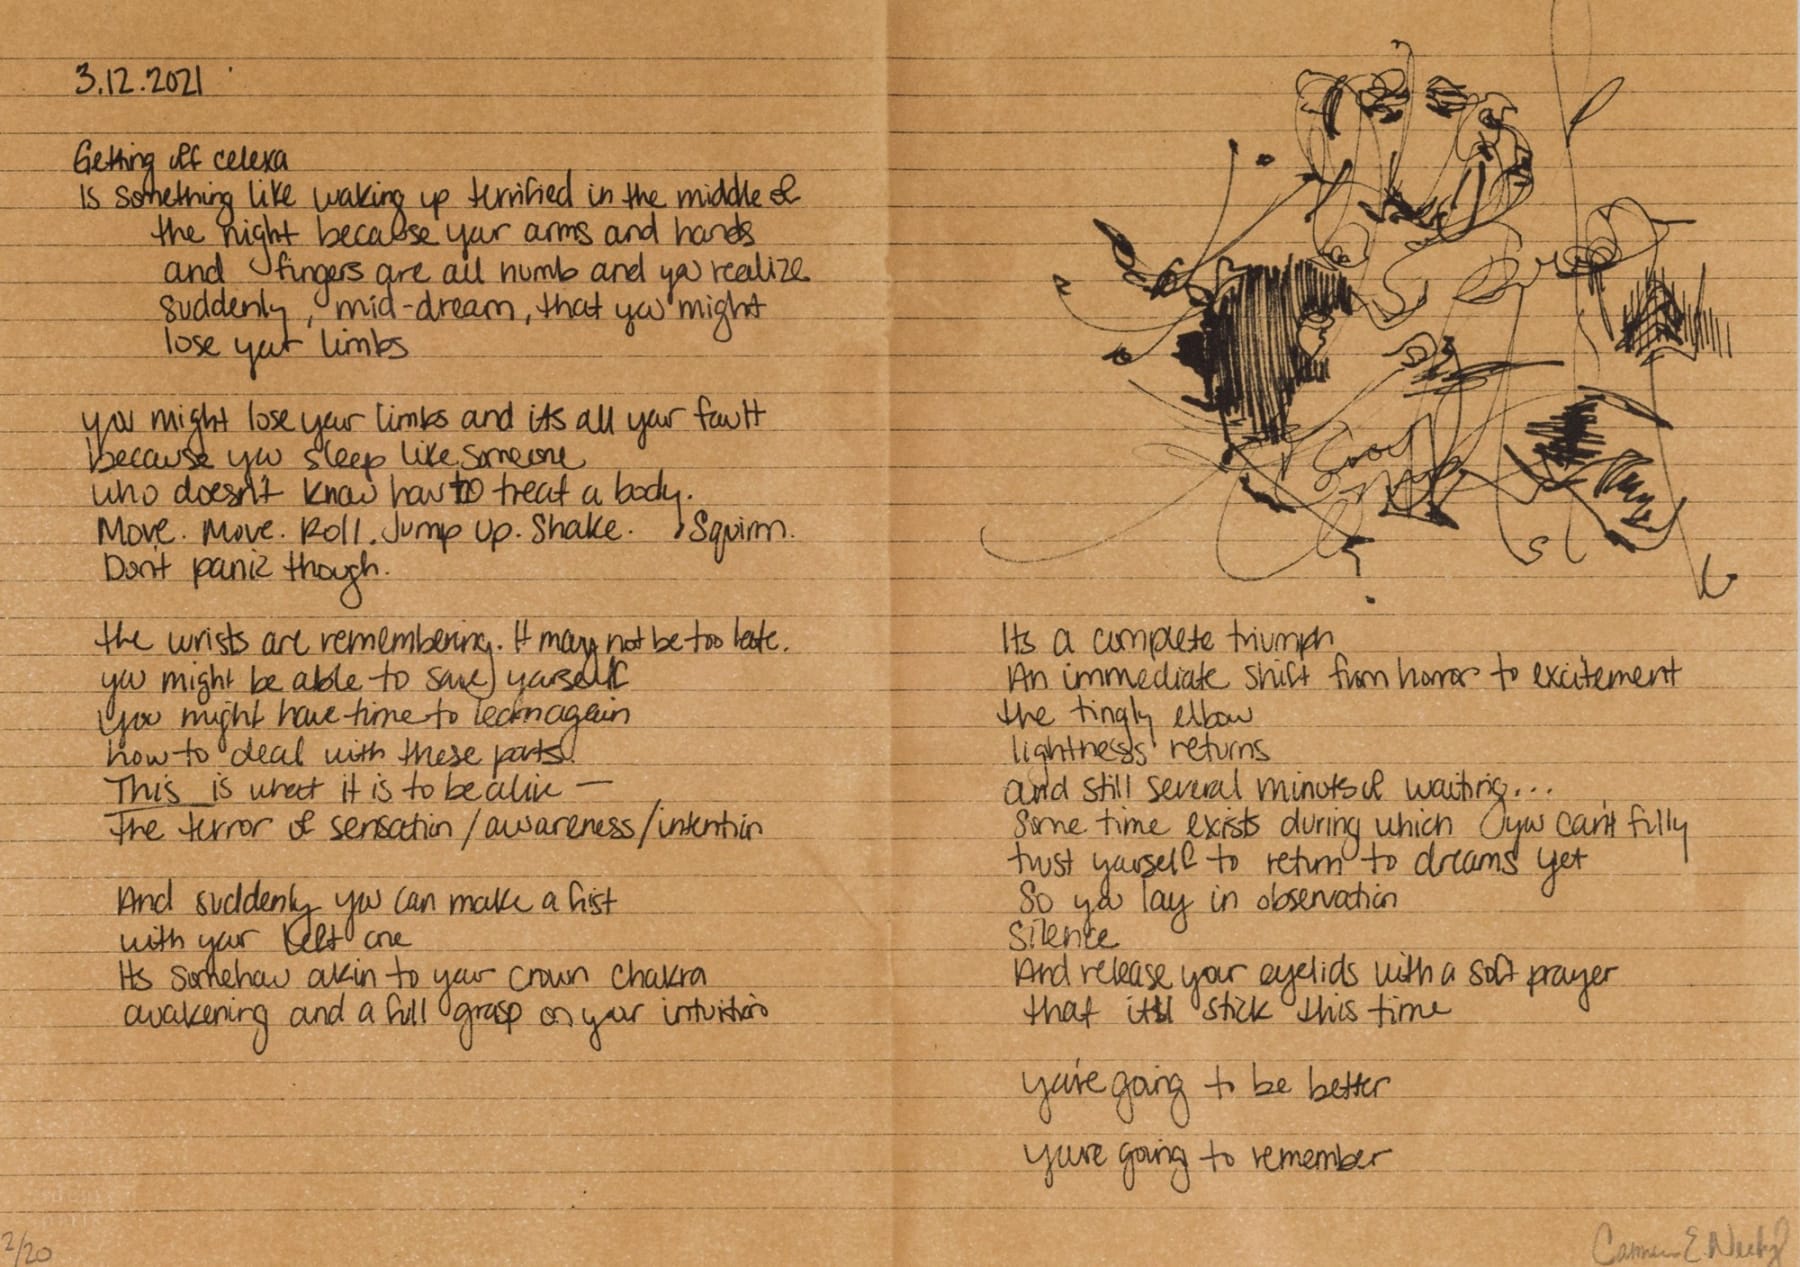 3.12.2021
Getting off celexa
is something like waking up terrified in the middle of
the night because your arms and hands
and fingers are all numb and you realize
suddenly, mid-dream, that you might
lose your limbs
you might lose your limbs and its all your fault
because you sleep like someone
who doesn't know how to treat a body.
Move. Move. Roll. Jump up. Shake. Squirm.
Don't panic though.
the wrists are remembering. It may not be too late.
you might be able to save yourself
you might have time to learn again
how to deal with these parts.
This is what it is to be alive —
The terror of sensation/awareness/intention
And suddenly you can make a fist
with your left one
Its somehow akin to your crown chakra
awakening and a full grasp on your intuition
Its a complete triumph
An immediate shift from horror to excitement
the tingly elbow
lightness returns
and still several minutes of waiting...
Some time exists during which you can't fully
trust yourself to return to dreams yet
So you lay in observation
Silence
And release your eyelids with a soft prayer
that it'll stick this time
you're going to be better
you're going to remember
2/20